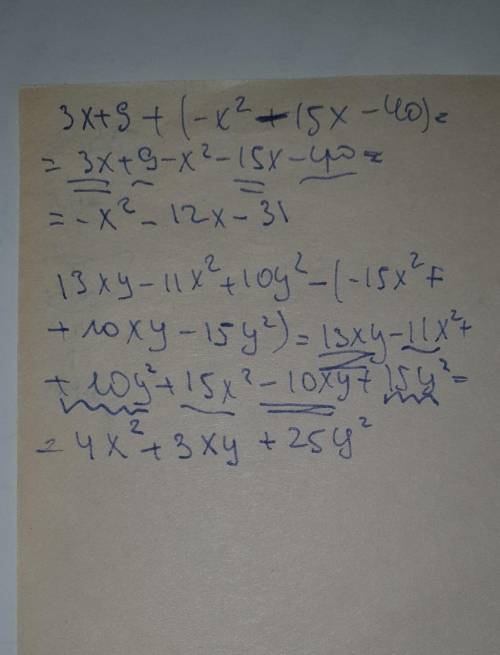 3x+9+(-x²-15x-40)=
=3x+9-x²-15x-40=
=-x²-12x-31
13xy-11x²+10y²-(-15x²+
+10xy-15y²)=13xy-11x²+
+10y²+15x²-10xy+15y²=
=4x²+3xy+25y²